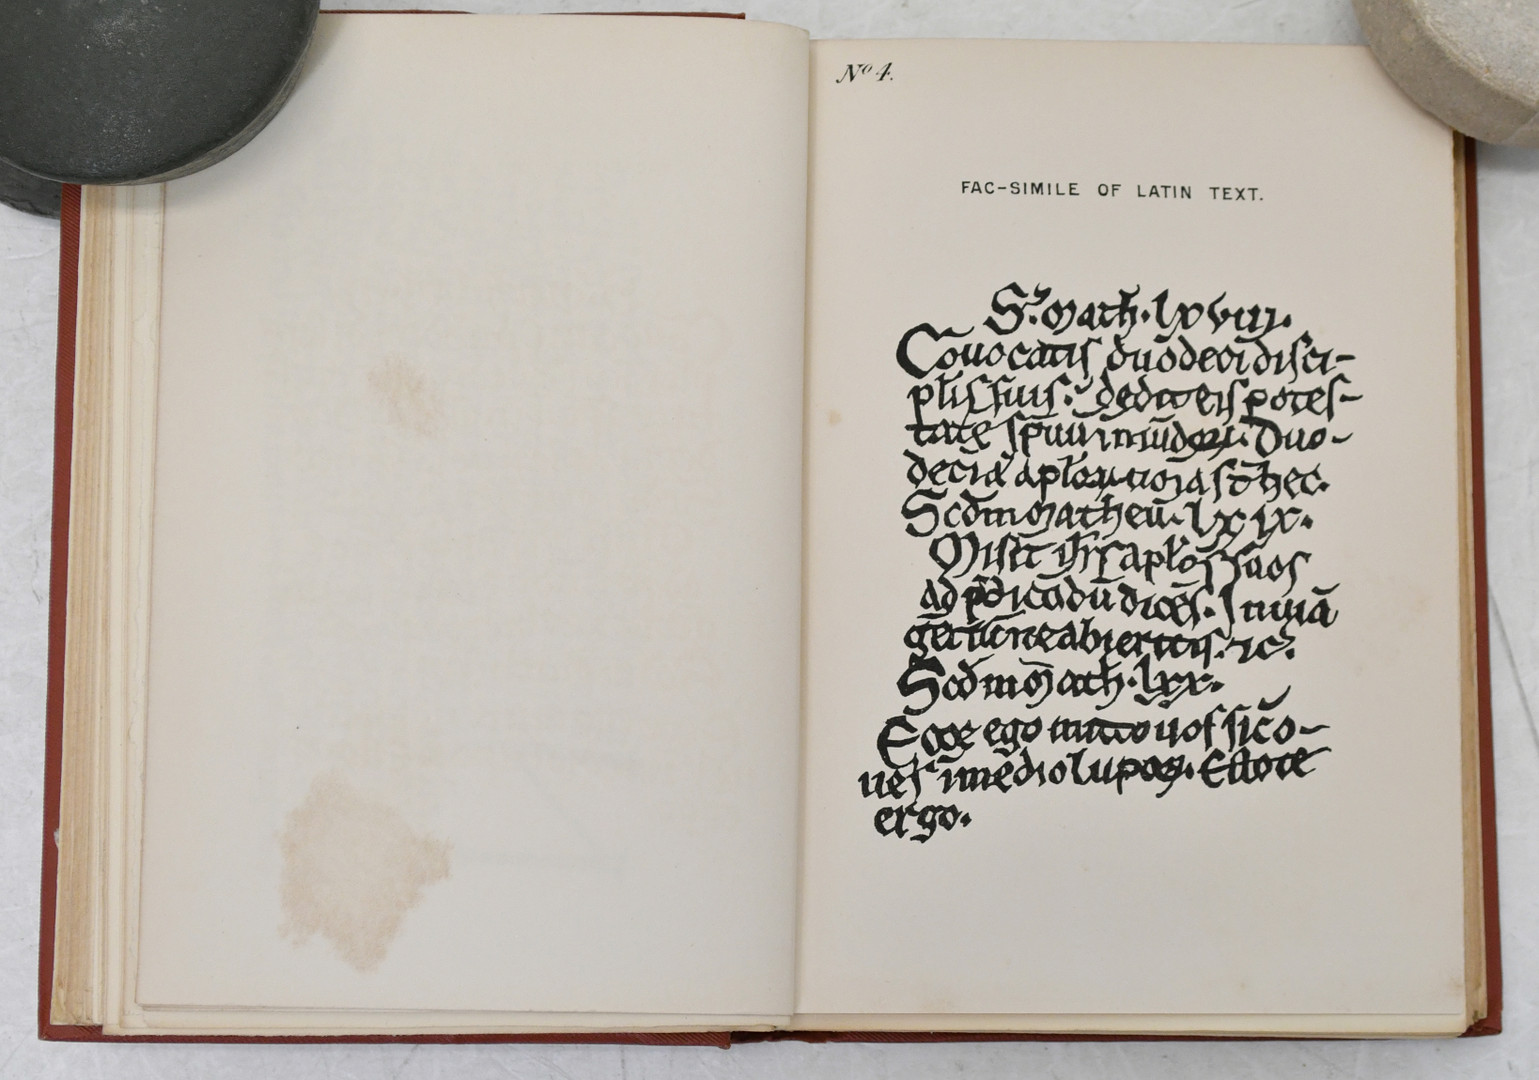 Nº 4.
FAC-SIMILE OF LATIN TEXT.
S. Math. lxviii.
Co͞uocatis duodeci disci-
pl̄is suis. dedit eis potes-
tate sp̄uu inmūdoꝝ. Duo-
deci aplōꝝ noīa st̄ hec.
Scd̄m Matheū. lxix.
Misit ih̄s apl̄os suos
ad p̄dicādū dicēs. In uiā
gētiū ne abieritis. ⁊c.
Scd̄m Math. lxx.
Ecce ego mitto uos sic o-
ues in medio lupoꝝ. Estote
ergo.